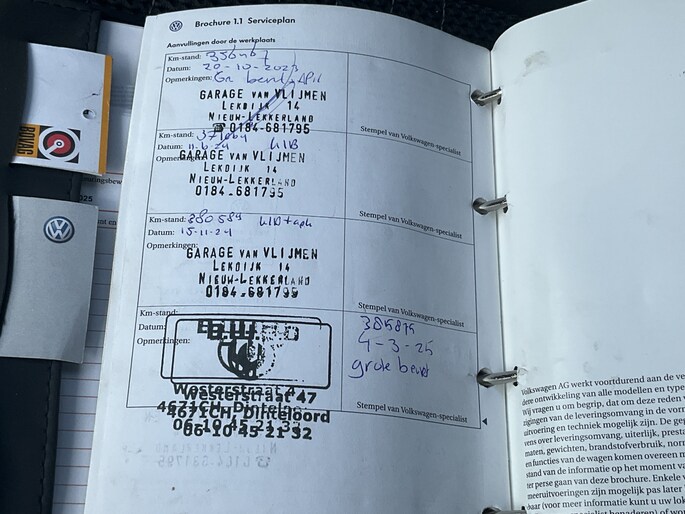 Brochure 1.1 Serviceplan
Aanvullingen door de werkplaats
Km-stand:
Datum: 20-10-2023
Opmerkingen: Gr beurt APK
GARAGE VAN VLIJMEN
LEKDIJK 14
NIEUW-LEKKERLAND
☎ 0184-681795
Stempel van Volkswagen-specialist
Km-stand:
Datum: 11-6-24
Opmerkingen:
GARAGE VAN VLIJMEN
LEKDIJK 14
NIEUW-LEKKERLAND
0184-681795
Stempel van Volkswagen-specialist
Km-stand: 380589
Datum: 15-11-24
Opmerkingen:
GARAGE VAN VLIJMEN
LEKDIJK 14
NIEUW-LEKKERLAND
0184-681795
Stempel van Volkswagen-specialist
Km-stand:
Datum:
Opmerkingen:
385875
4-3-25
grote beurt
Westerstraat 47
4671 CH Dinteloord
06 10 45 21 32
Stempel van Volkswagen-specialist
BOVAG
025
Volkswagen AG werkt voortdurend aan de ve
dere ontwikkeling van alle modellen en type
Wij vragen u om begrip, dat om deze reden
zigingen van de leveringsomvang in de vorm
uitvoering en techniek mogelijk zijn. De geg
vens over leveringsomvang, uiterlijk, presta
maten, gewichten, brandstofverbruik, norm
en functies van de wagen komen overeen m
stand van de informatie op het moment va
ter perse gaan van deze brochure. Enkele
meeruitvoeringen zijn mogelijk pas later
baar (voor meer informatie kunt u uw lok